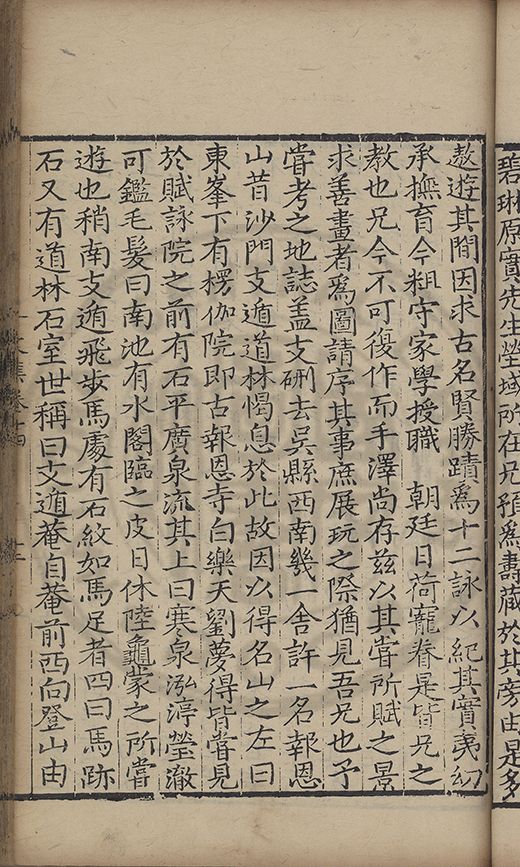 碧琳原實先生塋域所在兄預爲壽藏於其旁由是多
敖遊其間因求古名賢勝蹟爲十二詠以紀其實夷幼
承撫育今粗守家學授職　朝廷日荷寵眷是皆兄之
教也兄今不可復作而手澤尚存兹以其嘗所賦之景
求善畫者爲圖請序其事庶展玩之際猶見吾兄也予
嘗考之地誌盖支硎去吳縣西南幾一舍許一名報恩
山昔沙門支遁道林憩息於此故因以得名山之左曰
東峯下有楞伽院即古報恩寺白樂天劉夢得皆嘗見
於賦詠院之前有石平廣泉流其上曰寒泉泓渟瑩澈
可鑑毛髮曰南池有水閣臨之皮日休陸龜蒙之所嘗
遊也稍南支遁飛步馬處有石紋如馬足者四曰馬跡
石又有道林石室世稱曰支遁菴自菴前西向登山由